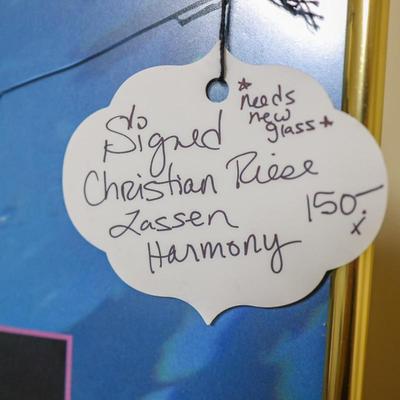 Signed
Christian Riese
Lassen
Harmony
*needs
new
glass*
150-
x